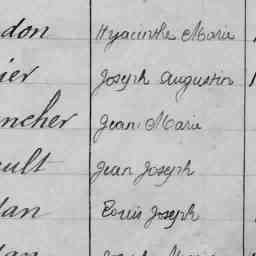 don Hyacinthe Marie
ier Joseph Augustin
ncher Jean Marie
ult Jean Joseph
dan Louis Joseph